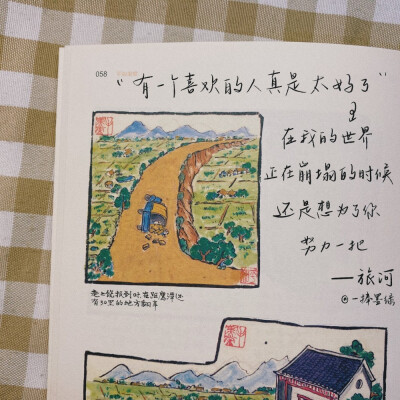 058
“有一个喜欢的人真是太好了”
在我的世界
正在崩塌的时候
还是想为了你
努力一把
——旅河
@一捧墨绿
找到时,在距鹰潭还
有30里的地方翻车